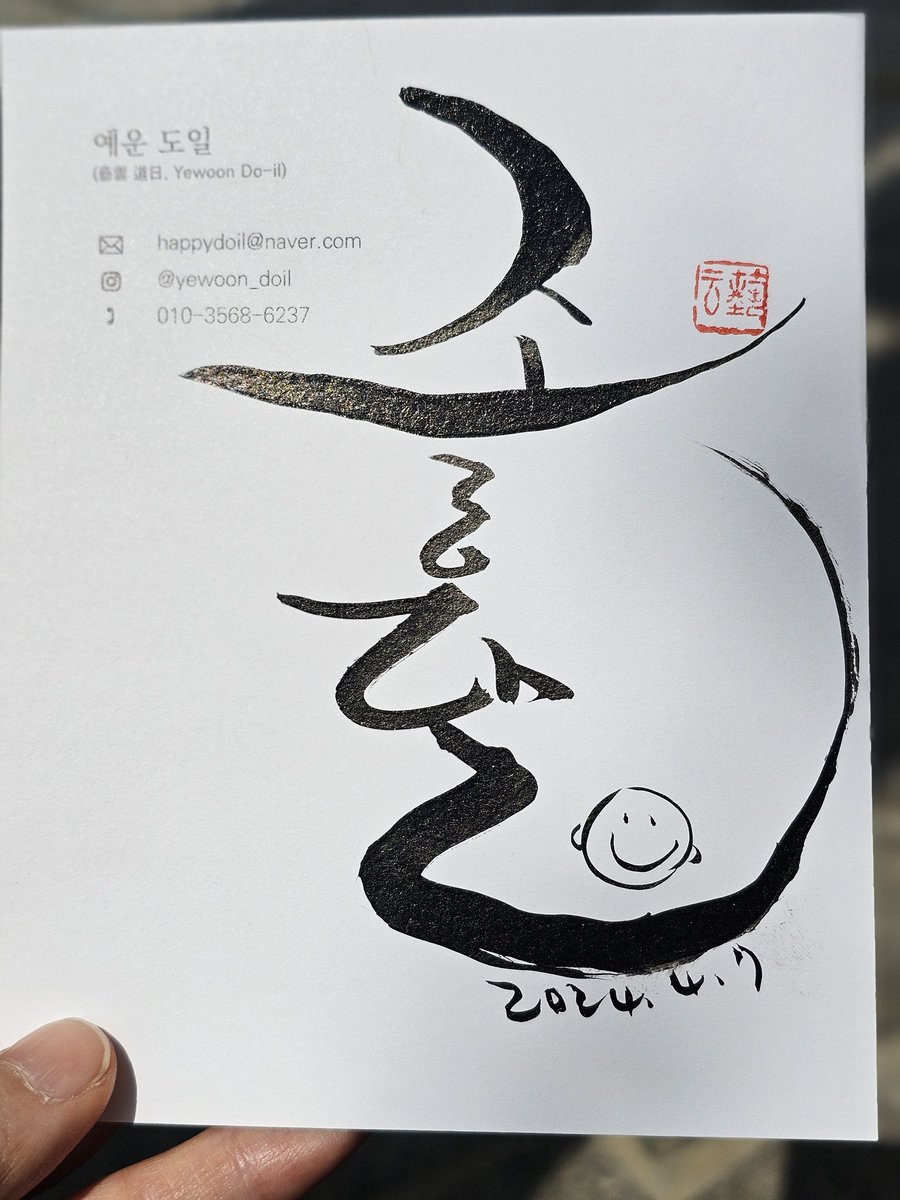 예운 도일
(藝雲 道日, Yewoon Do-il)
happydoil@naver.com
@yewoon_doil
010-3568-6237
藝云
2024.4.7